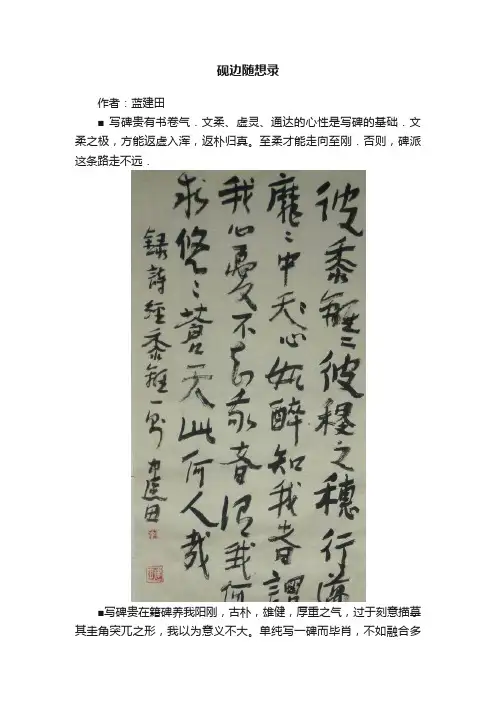 砚边随想录
作者：蓝建田
■ 写碑贵有书卷气．文柔、虚灵、通达的心性是写碑的基础．文
柔之极，方能返虚入浑，返朴归真。至柔才能走向至刚．否则，碑派
这条路走不远．
彼黍離〻彼稷之穗行邁
靡〻中天〻心如醉知我者謂
我心憂不知我者謂我何
求悠〻蒼天此何人哉
錄詩經黍離一 建田
■写碑贵在籍碑养我阳刚，古朴，雄健，厚重之气，过于刻意描摹
其圭角突兀之形，我以为意义不大。单纯写一碑而毕肖，不如融合多